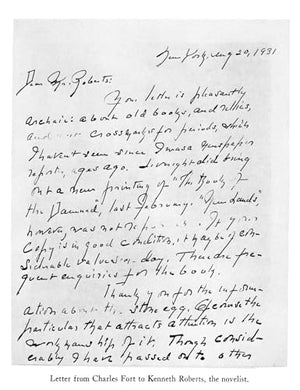 New York, Aug 20, 1931
Dear Mr. Roberts:
Your letter is pleasantly
archaic: about old books, and relics,
and crossmarks for periods, which
I haven't seen since I was a newspaper
reporter, ages ago. Liveright did bring
out a new printing of "The Book of
the Damned", last February. "New Lands",
however, was not If your
copy is in good condition, it may be of con-
siderable value some day. There are fre-
quent enquiries for the book.
Thank you for the inform-
ation about the stone egg. Of course the
particular that attracts attention is the
workmanship of it. Though consid-
erably I have passed on to other
Letter from Charles Fort to Kenneth Roberts, the novelist.